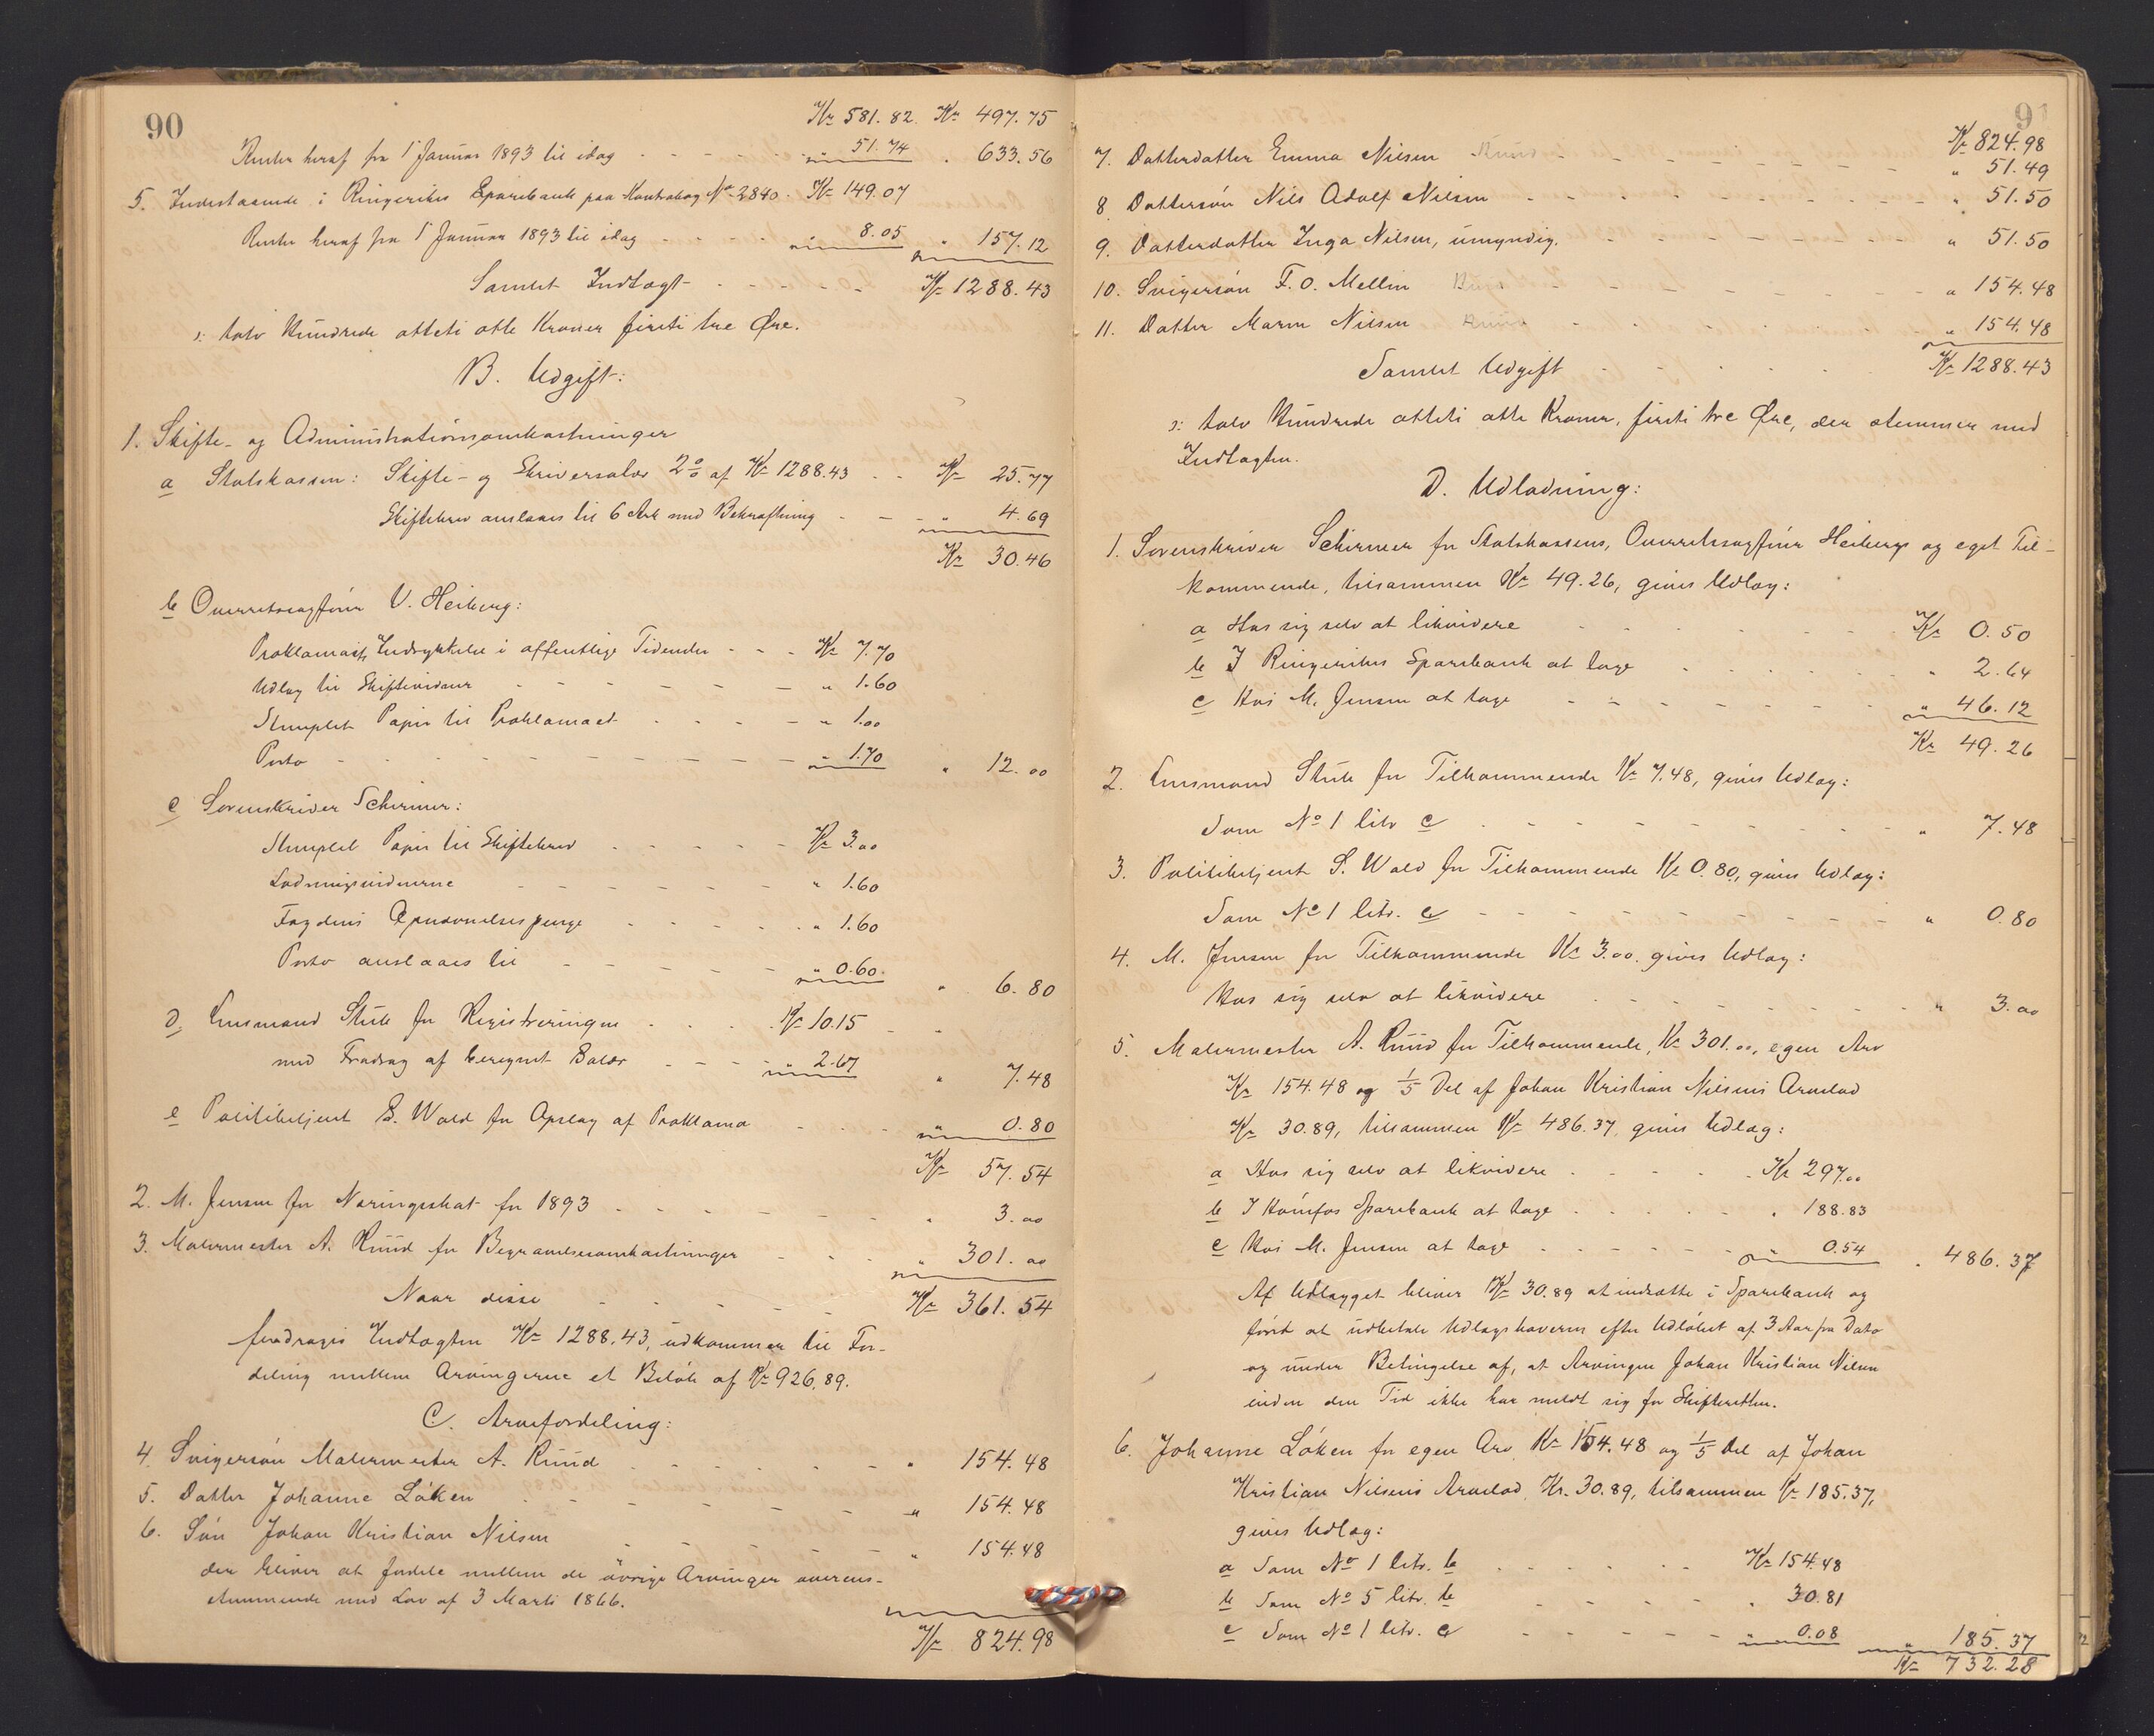 90
Kr 581.82 Kr 497.75
Renter heraf fra 1 Januar 1893 til idag - - - - " 51.74 " 633.56
5. Indestaaende i Ringerikes Sparebank paa Kontrabog No 2840 - Kr 149.07
Renter heraf fra 1 Januar 1893 til idag - - - - " 8.05 " 157.12
Samlet Indtægt - - - - - Kr 1288.43
ɔ: tolv Hundrede otteti otte Kroner firti tre Øre.
B. Udgift:
1. Skifte- og Administrationsomkostninger
a Statskassen: Skifte- og Skriversalær 2% af Kr 1288.43 - - Kr 25.77
Skiftebrev anslaaes til 6 Ark med Bekræftning - - - " 4.69
Kr 30.46
b Overretssagfører V. Heiberg:
Proklamats Indrykkelse i offentlige Tidender - - - Kr 7.70
Udlæg til Skiftevidner - - - - - - " 1.60
Stemplet Papir til Proklamaet - - - - " 1.00
Porto - - - - - - - - - " 1.70 " 12.00
c Sorenskriver Schirmer:
Stemplet Papir til Skiftebrev - - - - - Kr 3.00
Lodningsvidnerne - - - - - - " 1.60
Fogdens Opnævnelsespenge - - - - - " 1.60
Porto anslaaes til - - - - - " 0.60 " 6.80
d, Lensmand Stub for Registreringen - - - - Kr 10.15
med Fradrag af beregnet Salær - - - " 2.67 " 7.48
e Politibetjent S. Wold for Opslag af Proklama - - - " 0.80
Kr 57.54
2. M. Jensen for Næringsskat for 1893 - - - - - - " 3.00
3. Malermester A. Ruud for Begravelsesomkostninger - - - " 301.00
Naar disse - - - - - Kr 361.54
fradrages Indtægten Kr 1288.43, udkommer til For-
deling mellem Arvingerne et Beløb af Kr 926.89.
C. Arvefordeling:
4. Svigersøn Malermester A. Ruud - - - - - - " 154.48
5. Datter Johanne Løken - - - - - - - " 154.48
6. Søn Johan Kristian Nilsen - - - - - " 154.48
der bliver at fordele mellem de øvrige Arvinger overens-
stemmende med Lov af 3 Marts 1866.
Kr 824.98
91
Kr 824.98
7. Datterdatter Emma Nilsen Ruud - - - - - - - " 51.49
8. Dattersøn Nils Adolf Nilsen - - - - - - - - " 51.50
9. Datterdatter Inga Nilsen, umyndig. - - - - - - " 51.50
10. Svigersøn F. O. Mellin - - - - - - - " 154.48
11. Datter Maren Nilsen - - - - - - " 154.48
Samlet Udgift - - - - - Kr 1288.43
ɔ: tolv Hundrede otteti otte Kroner, firti tre Øre, der stemmer med
Indtægten.
D. Udlodning:
1. Sorenskriver Schirmer for Statskassens, Overretssagfører Heibergs og eget Til-
kommende, tilsammen Kr 49.26, gives Udlæg:
a Hos sig selv at likvidere - - - - - - Kr 0.50
b I Ringerikes Sparebank at tage - - - - - " 2.64
c Hos M. Jensen at tage - - - - - - " 46.12
Kr 49.26
2. Lensmand Stub for Tilkommende Kr 7.48, gives Udlæg:
Som No 1 litr c - - - - - - - - - " 7.48
3. Politibetjent S. Wold for Tilkommende Kr 0.80, gives Udlæg:
Som No 1 litr. c - - - - - - - - - " 0.80
4. M. Jensen for Tilkommende Kr 3.00. gives Udlæg:
Hos sig selv at likvidere - - - - - - - " 3.00
5. Malermester A. Ruud for Tilkommende, Kr 301.00, egen Arv
Kr 154.48 og 1/5 Del af Johan Kristian Nilsens Arvelod
Kr 30.89, tilsammen Kr 486.37, gives Udlæg:
a Hos sig selv at likvidere - - - - - Kr 297.00
b I Hønefos Sparebank at tage - - - - - " 188.83
c Hos M. Jensen at tage - - - - - - " 0.54 " 486.37
Af Udlægget bliver Kr 30.89 at indsætte i Sparebank og
først at udbetale Udlægshaveren efter Udløbet af 3 Aar fra Dato
og under Betingelse af, at Arvingen Johan Kristian Nilsen
inden den Tid ikke har meldt sig for Skifteretten.
6. Johanne Løken for egen Arv, Kr 154.48 og 1/5 Del af Johan
Kristian Nilsens Arvelod, Kr. 30.89, tilsammen Kr 185.37,
gives Udlæg:
a Som No 1 litr. b - - - - - - Kr 154.48
b Som No 5 litr. b - - - - - " 30.81
c Som No 1 litr. c - - - - - " 0.08 " 185.37
Kr 732.28